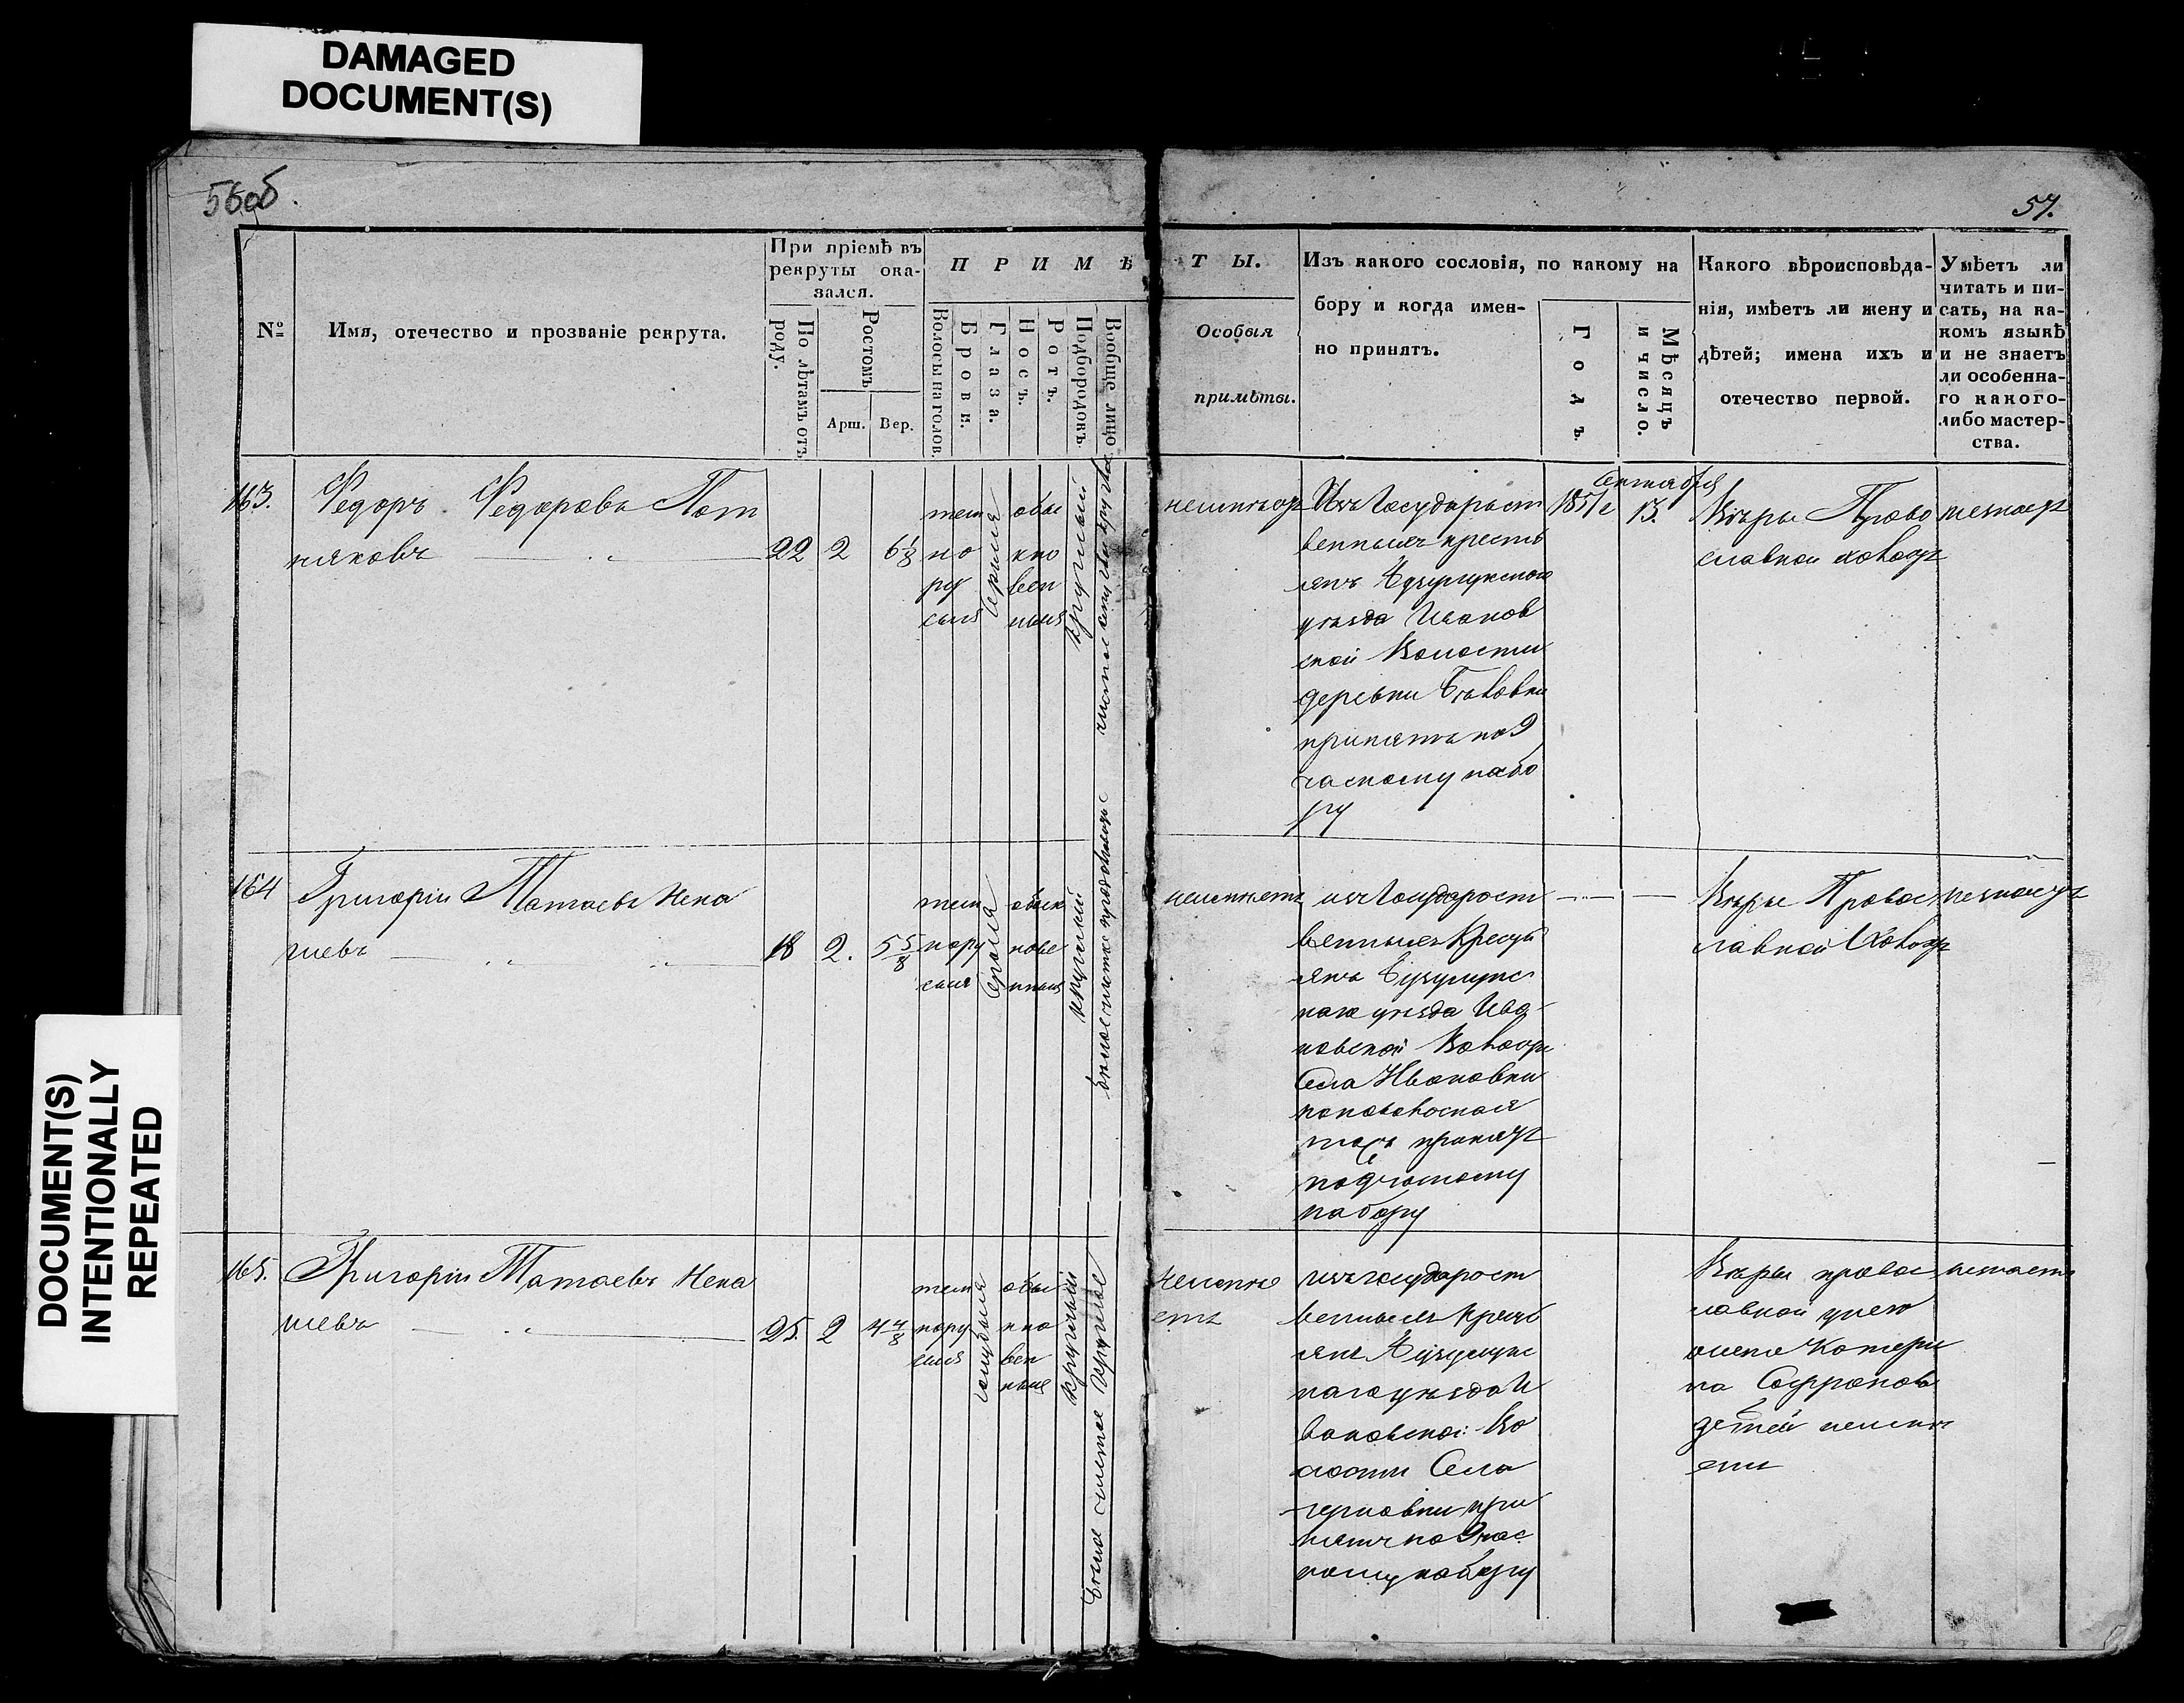 DAMAGED
DOCUMENT(S)
DOCUMENT(S)
INTENTIONALLY
REPEATED
56об.
57.
№
Имя, отечество и прозваніе рекрута.
При пріемѣ въ
рекруты ока-
зался.
По лѣтамъ отъ
роду.
Ростомъ
Арш.
Вер.
ПРИМѢ
Волосы на голов.
Брови.
Глаза.
Носъ.
Ротъ.
Подбородокъ.
Вообще лицо
ТЫ.
Особыя
примѣты.
Изъ какого сословія, по какому на
бору и когда имен-
но принятъ.
Годъ.
Мѣсяцъ
и число.
Какого вѣроисповѣда-
нія, имѣетъ ли жену и
дѣтей; имена ихъ и
отечество первой.
Умѣетъ ли
читать и пи-
сать, на ка-
комъ языкѣ
и не знаетъ
ли особенна-
го какого-
либо мастер-
ства.
163.
Федоръ Федоровъ Пот
няковъ
22
2
6 1/8
тем
но
ру
сыя
обы
кно
вен
ныя
круглый
неимѣетъ
Изъ Государст
венныхъ кресть
янъ Бузулукскаго
уѣзда Иванов
ской Волости
деревни
принятъ по 9
частному набо
ру
185½
Сентября
13.
Вѣры Право
славной холостъ
незнаетъ
164
Григорій Матвевъ Нена
шевъ
18
2.
5 5/8
тем
нору
сыя
обык
нове
нныя
круглый
неимѣетъ
изъ Государст
венныхъ Кресть
янъ Бузулукс
каго уѣзда Ива-
новской Волости
Села Ивановки
принятъ
по 9 частному
набору
Вѣры Правос
лавной Холостъ
незнаетъ
165.
Григорій Матвевъ Нена
шевъ
25.
2
4 4/8
тем
нору
сыя
голубыя
обы
кно
вен
ныя
круглый
белое чистое круглое
Неимѣ
етъ
изъ государст
венныхъ Кресть
янъ Бузулукс
каго уѣзда И
вановской Во
лости Села
черновки при
нятъ по 9 час
ному набору
Вѣры правос
лавной
Катери
на Софронова
детей неимѣ
етъ
незнаетъ